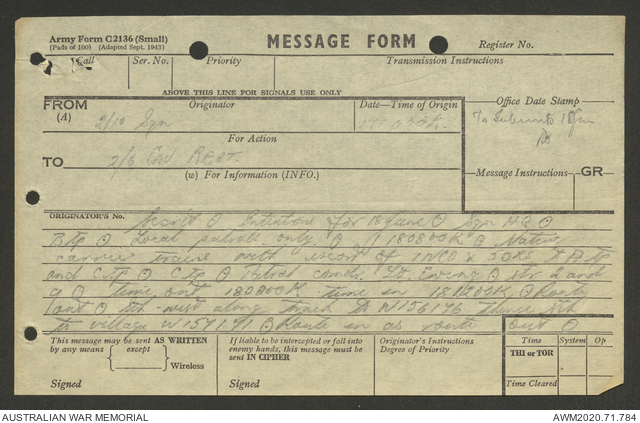 Army Form C2136 (Small)
(Pads of 100) (Adapted Sept. 1943)
MESSAGE FORM
Register No.
Call Ser. No. Priority Transmission Instructions
ABOVE THIS LINE FOR SIGNALS USE ONLY
FROM Originator Date—Time of Origin Office Date Stamp
(A) 2/10 Sqn
To Subunits 18 Jun
For Action
TO 2/6 Cav REGT.
(w) For Information (INFO.) Message Instructions GR
ORIGINATOR'S No. Secret O Intentions for 18 June O Sqn HQ O
B Tp O Local patrols only O 180800K O Native
carrier train with escort of 1 NCO & 3 ORs to A Tp
and C Tp O C Tp O Patrol comd. Lt. Ewing O str 2 and
9 O time out 180800K time in 181200K O Route
out O west along track to W156176 thence
to village W157171 O Route in as route out O
This message may be sent AS WRITTEN
by any means except
Wireless
Signed
If liable to be intercepted or fall into
enemy hands, this message must be
sent IN CIPHER
Signed
Originator's Instructions
Degree of Priority
Time System Op
THI or TOR
Time Cleared
AUSTRALIAN WAR MEMORIAL AWM2020.71.784